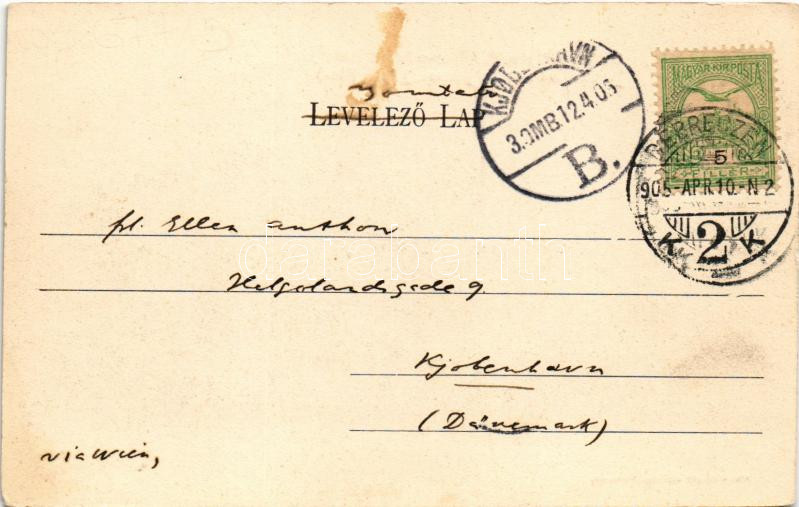 LEVELEZŐ LAP
KJØBENHAVN
3.OMB.12.4.05
B.
MAGYAR·KIR·POSTA
5
FILLÉR
DEBRECZEN
905-APR.10.-N2
2
K K
frl. Ellen Anthon
Helgolandsgade 9.
Kjobenhavn
(Dänemark)
via Wien,
darabanth